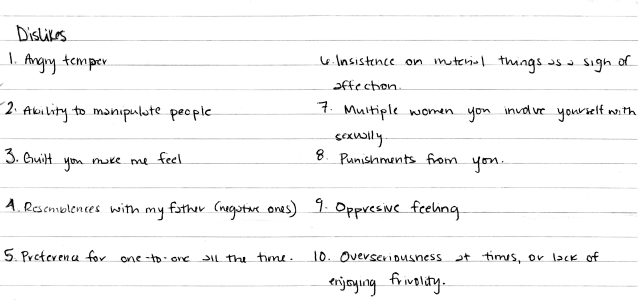 Dislikes
1. Angry temper
2. Ability to manipulate people
3. Guilt you make me feel
4. Resemblences with my father (negative ones)
5. Preference for one-to-one all the time.
6. Insistence on material things as a sign of
affection.
7. Multiple women you involve yourself with
sexually.
8. Punishments from you.
9. Oppresive feeling
10. Overseriousness at times, or lack of
enjoying frivolity.